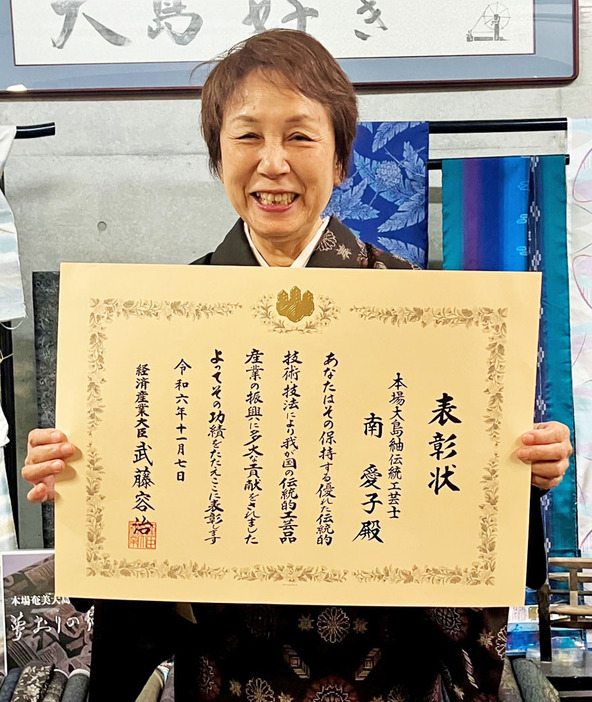 大島好き
表彰状
本場大島紬伝統工芸士
南 愛子殿
あなたはその保持する優れた伝統的
技術技法により我が国の伝統的工芸品
産業の振興に多大な貢献をされました
よってその功績をたたえここに表彰します
令和六年十一月七日
経済産業大臣 武藤容治
本場奄美大島
夢おりの